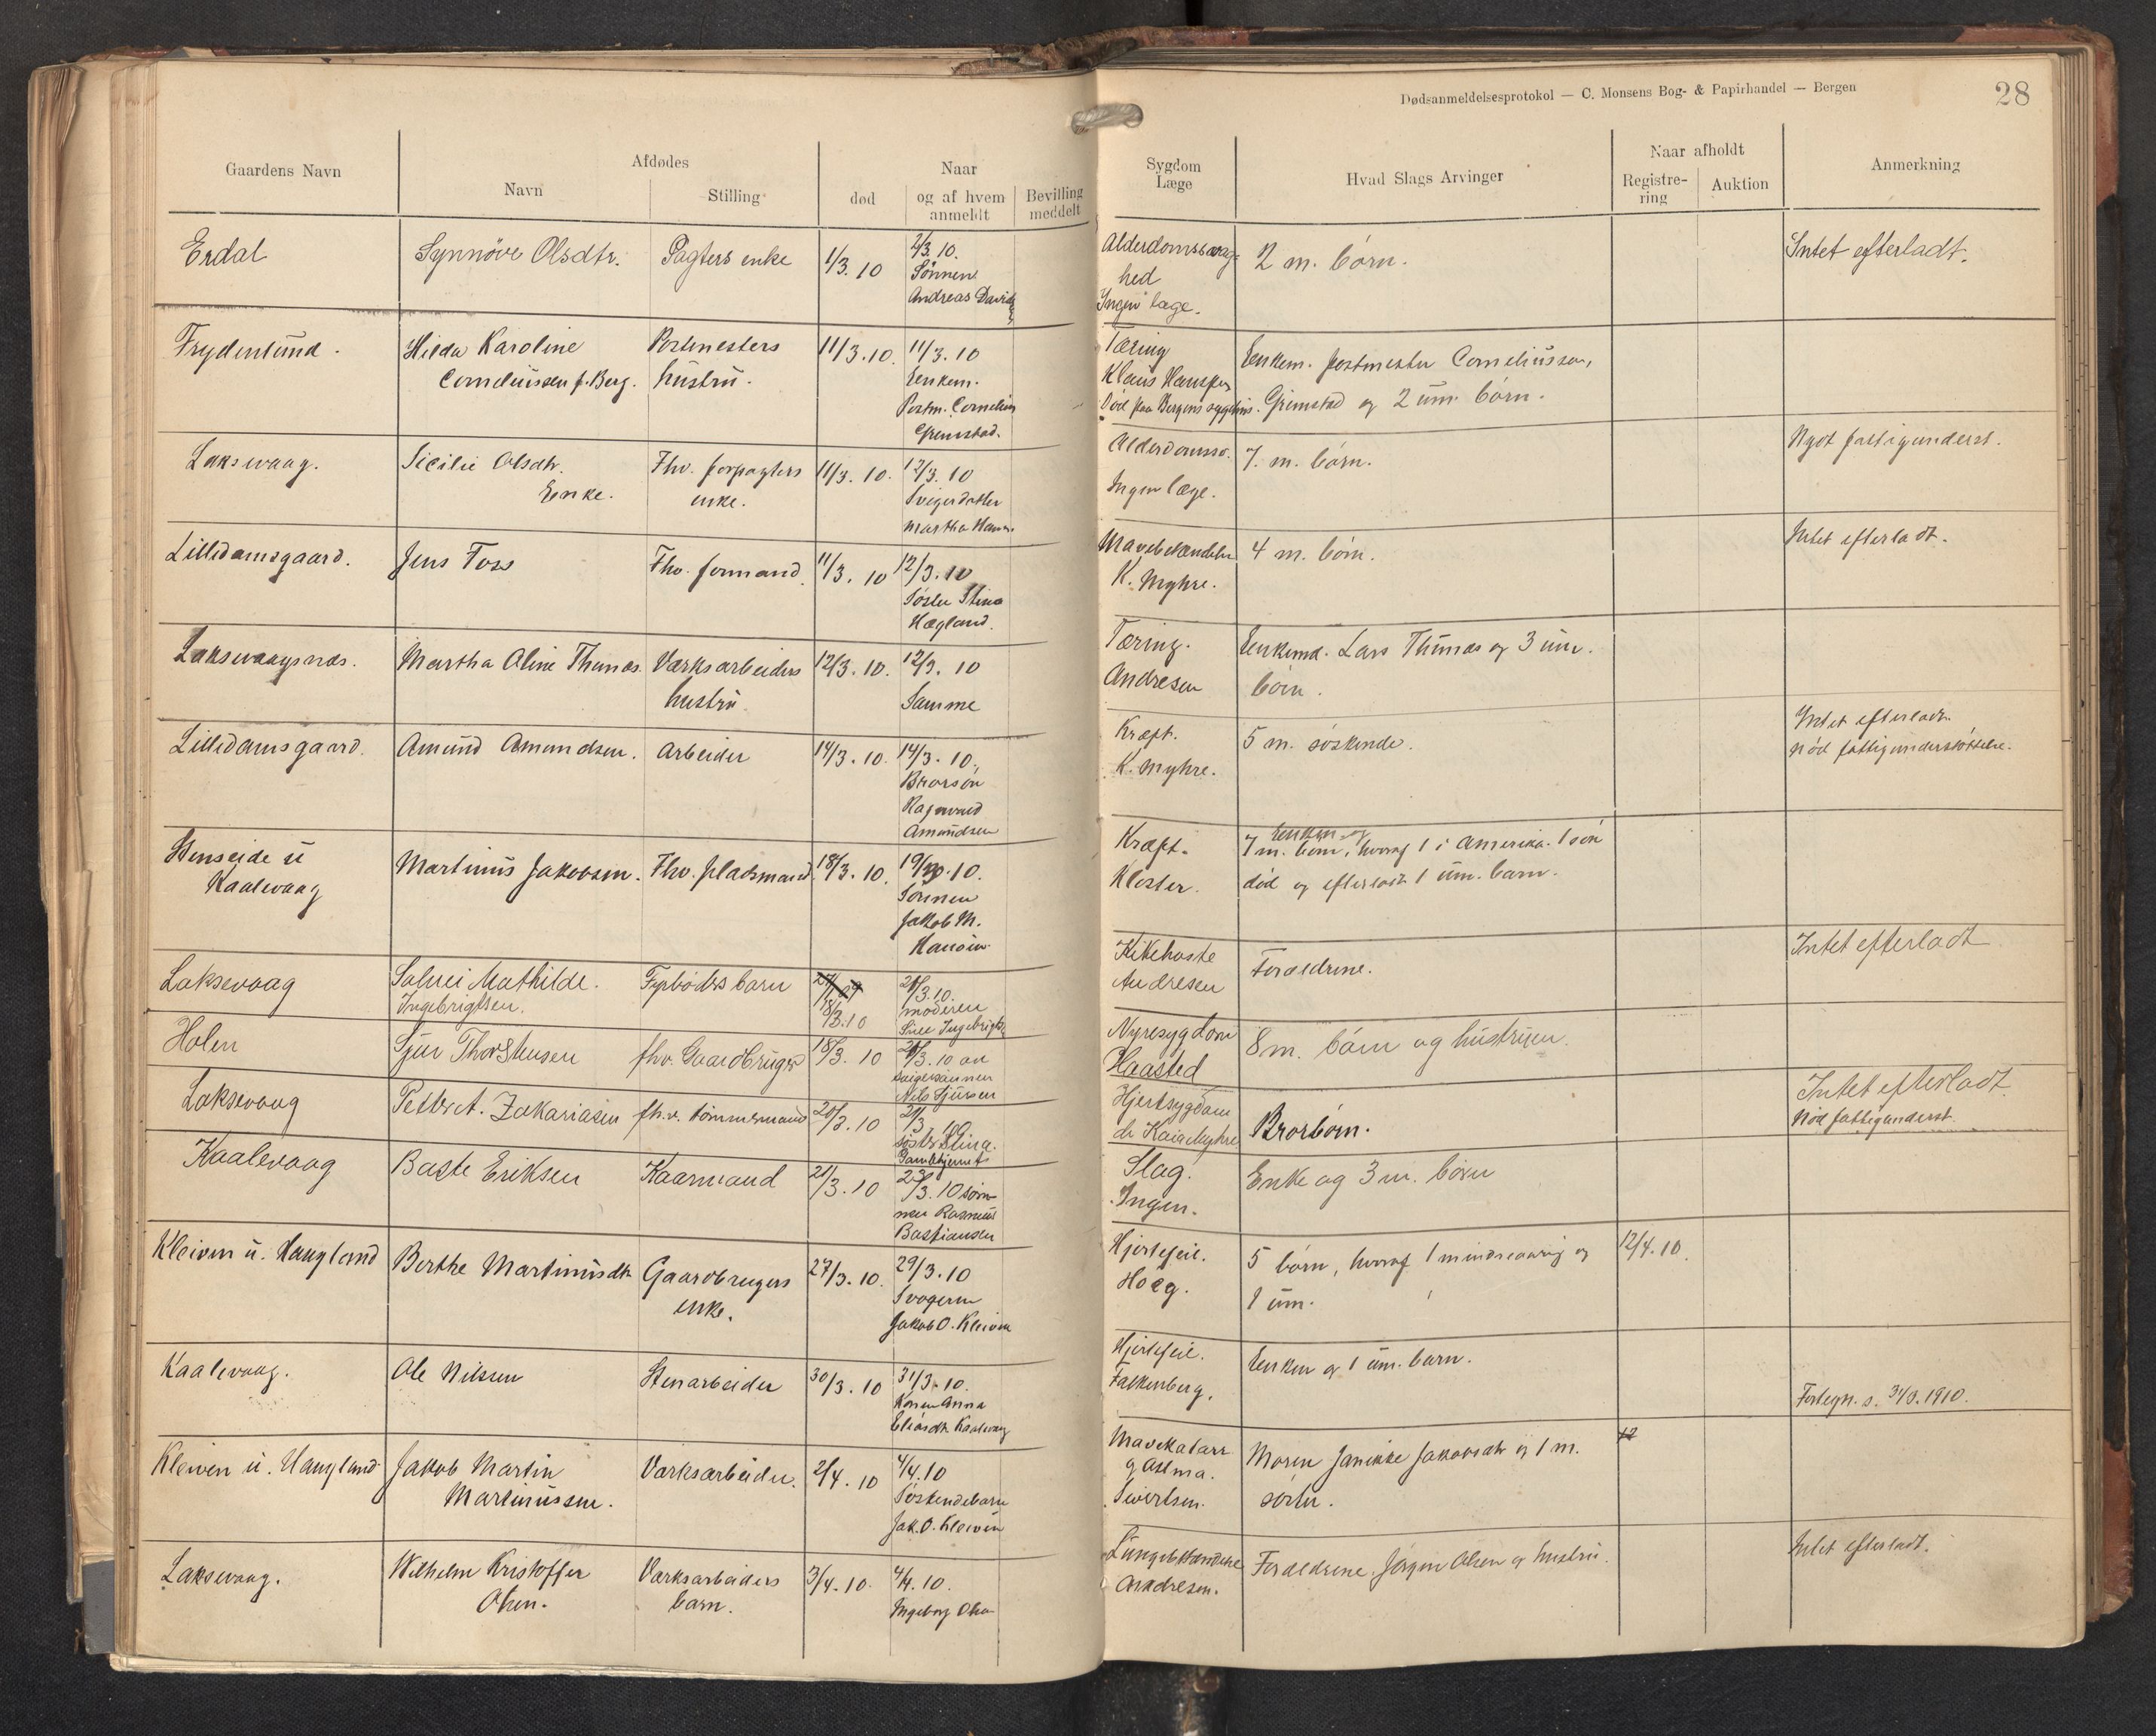 Dødsanmeldelsesprotokol — C. Monsens Bog- & Papirhandel — Bergen
28
Gaardens Navn
Afdødes
Navn
Stilling
Naar
død
og af hvem
anmeldt
Bevilling
meddelt
Sygdom
Læge
Hvad Slags Arvinger
Naar afholdt
Registre-
ring
Auktion
Anmerkning
Erdal
Synnöve Olsdtr.
Pagters enke
1/3. 10
2/3. 10.
Sønnen
Andreas Davids
Alderdomssvag-
hed
Ingen læge.
2 m. børn.
Intet efterladt.
Frydenlund.
Hilda Karoline
Corneliussen f. Berg.
Postmesters
hustru.
11/3. 10.
11/3. 10
Enkem.
Postm. Cornelius
Grimstad.
Tæring
Klaus Hanssen
Død paa Bergens sygehus.
Enkem. postmester Corneliussen,
Grimstad og 2 um. børn.
Laksevaag.
Sicilie Olsdtr.
Enke.
Fhv. forpagters
enke.
11/3. 10.
12/3. 10
Svigerdatter
Martha Hans.
Alderdomssv.
Ingen læge.
7. m. børn.
Nydt fattigunderst.
Lilledamsgaard.
Jens Foss
Fhv. formand.
11/3. 10
12/3. 10
Søster Stina
Hægland.
Mavebetændelse
K. Myhre.
4 m. børn.
Intet efterladt.
Laksevaagsnæs.
Martha Aline Thunæs.
Værksarbeiders
hustru.
12/3. 10.
12/3. 10
Samme
Tæring.
Andresen
Enkemd. Lars Thunæs og 3 um.
børn.
Lilledamsgaard.
Amund Amundsen.
Arbeider
14/3. 10.
14/3. 10.
Brorsøn
Ragnvald
Amundsen
Kræft.
K. Myhre.
5 m. søskende.
Intet efterladt.
Nød fattigunderstøttelse.
Stenseide u
Kaalevaag
Martinus Jakobsen.
Fhv. pladsmand.
18/3. 10.
19/3. 10.
Sønnen
Jakob M.
Hansen.
Kræft.
Kloster.
Enken og
7 m. børn, hvoraf 1 i Amerika. 1 søn
død og efterladt 1 um. barn.
Laksevaag
Solvei Mathilde.
Ingebrigtsen.
Fyrbøders barn
18/3.10
21/3.10.
moderen
Sine Ingebrigts.
Kikehoste
Andresen
Forældrene.
Intet efterladt
Holen
Sjur Thorstensen
fhv. Gaardbruger
18/3. 10
21/3. 10 av
svigersønnen
Nils Sjursen
Nyresygdom
Haasted
8 m. børn og hustruen.
Laksevaag
Petter A. Zakariasen
fh.v. tømmermand
20/3. 10
21/3 10
søster Stina.
Gamlehjemmet
Hjertsygdom
dr Kaia Myhre
Brorbørn.
Intet efterladt.
Nød fattigunderst.
Kaalevaag
Baste Eriksen
Kaarmand
21/3. 10
23/3. 10 søn-
nen Rasmus
Bastiansen
Slag.
Ingen.
Enke og 3 m. børn
Kleiven u. Haugland
Berthe Martinusdtr.
Gaardbrugers
enke.
27/3. 10.
29/3. 10
Svogeren
Jakob O. Kleiven
Hjertefeil.
Hoeg.
5 børn, hvoraf 1 mindreaarig og
1 um.
12/4. 10.
Kaalevaag.
Ole Nilssen
Stenarbeider
30/3. 10
31/3. 10.
Konen Anna
Eliasdtr. Kaalevaag
Hjertefeil.
Falkenberg.
Enken og 1 um. barn.
Fortegn. s. 31/3. 1910.
Kleiven u. Haugland
Jakob Martin
Martinussen.
Værksarbeider.
2/4. 10
4/4. 10
Søskendebarn
Jak. O. Kleiven
Mavekatarr
og Astma.
Sivertsen.
Moren Janikke Jakobsdtr. og 1 m.
søster.
12
Laksevaag.
Wilhelm Kristoffer
Olsen.
Værksarbeiders
barn.
3/4. 10.
4/4. 10.
Ingeborg Olsen
Lungebetændelse
Andresen.
Forældrene Jørgen Olsen og hustru.
Intet efterladt.